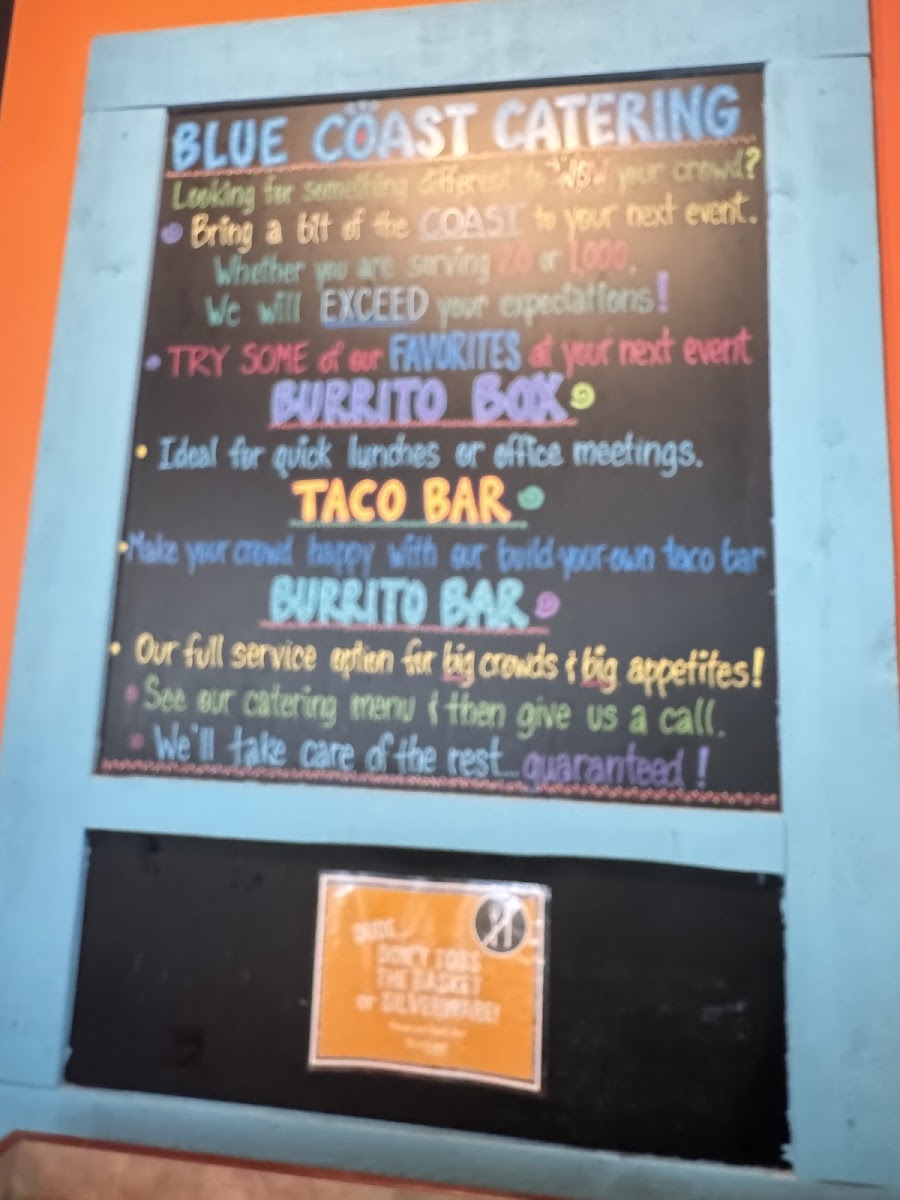 BLUE COAST CATERING
Looking for something different to WOW your crowd?
Bring a bit of the COAST to your next event.
Whether you are serving 20 or 1,000.
We will EXCEED your expectations!
• TRY SOME of our FAVORITES at your next event
BURRITO BOX
• Ideal for quick lunches or office meetings.
TACO BAR
• Make your crowd happy with our build-your-own taco bar
BURRITO BAR
• Our full service option for big crowds & big appetites!
• See our catering menu & then give us a call.
• We'll take care of the rest... guaranteed!
DUDE...
DON'T TOSS
THE BASKET
or SILVERWARE!